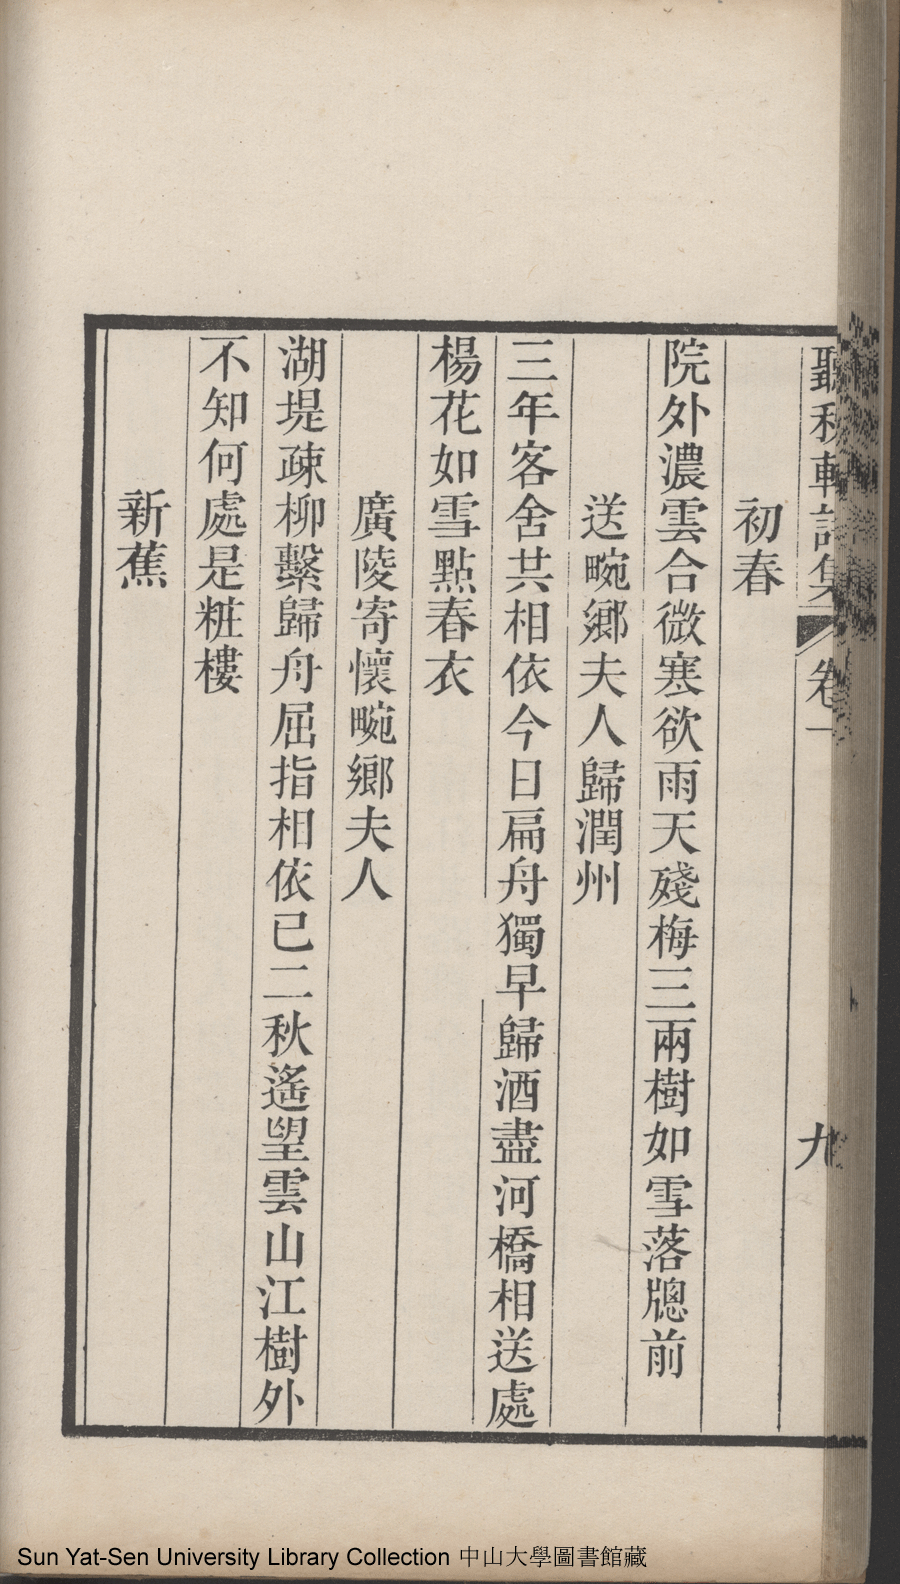 聽秋軒詩集 卷一 九
初春
院外濃雲合微寒欲雨天殘梅三兩樹如雪落牕前
送畹鄉夫人歸潤州
三年客舍共相依今日扁舟獨早歸酒盡河橋相送處
楊花如雪點春衣
廣陵寄懷畹鄉夫人
湖堤疎柳繫歸舟屈指相依已二秋遙望雲山江樹外
不知何處是粧樓
新蕉
Sun Yat-Sen University Library Collection 中山大學圖書館藏